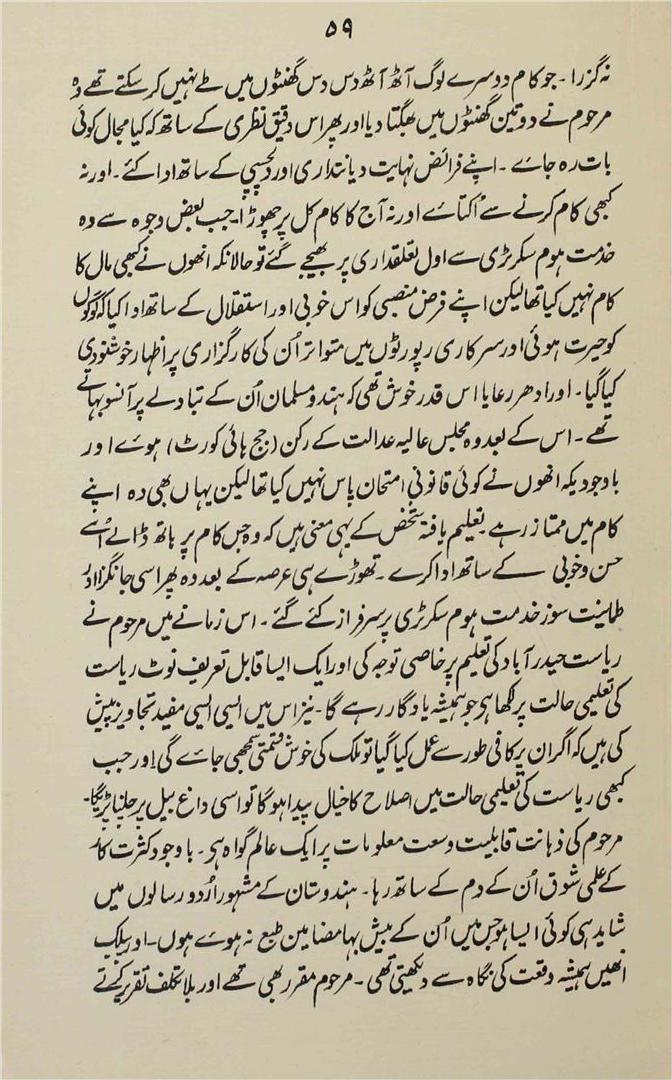 ۵۹
نہ گزرا۔ جو کام دوسرے لوگ آٹھ آٹھ دس دس گھنٹوں میں طے نہیں کر سکتے تھے وہ
مرحوم نے دو تین گھنٹوں میں بھگتا دیا اور پھر اس دقیق نظری کے ساتھ کہ کیا مجال کوئی
بات رہ جاے ۔ اپنے فرائض نہایت دیانتداری اور دلچسپی کے ساتھ ادا کئے ۔ اور نہ
کبھی کام کرنے سے اُکتاے اور نہ آج کا کام کل پر چھوڑا۔ جب بعض وجوہ سے وہ
خدمت ہوم سکرٹری سے اول تعلقداری پر بھیجے گئے تو حالانکہ انھوں نے کبھی مال کا
کام نہیں کیا تھا لیکن اپنے فرض منصبی کو اس خوبی اور استقلال کے ساتھ ادا کیا کہ لوگوں
کو حیرت ہوئی اور سرکاری رپورٹوں میں متواتر اُن کی کارگزاری پر اظہار خوشنودی
کیا گیا ۔ اور ادھر رعایا اس قدر خوش تھی کہ ہندو مسلمان اُن کے تبادلے پر آنسو بہاتے
تھے ۔ اس کے بعد وہ مجلس عالیہ عدالت کے رکن (جج ہائی کورٹ) ہوے اور
باوجودیکہ انھوں نے کوئی قانونی امتحان پاس نہیں کیا تھا لیکن یہاں بھی وہ اپنے
کام میں ممتاز رہے۔ تعلیم یافتہ شخص کے یہی معنی ہیں کہ وہ جس کام پر ہاتھ ڈالے اُسے
حسن و خوبی کے ساتھ ادا کرے ۔ تھوڑے ہی عرصہ کے بعد وہ پھر اسی جانگزا اور
طمانیت سوز خدمت ہوم سکرٹری پر سرفراز کئے گئے ۔ اس زمانے میں مرحوم نے
ریاست حیدرآباد کی تعلیم پر خاصی توجہ کی اور ایک ایسا قابل تعریف نوٹ ریاست
کی تعلیمی حالت پر لکھا ہی جو ہمیشہ یادگار رہے گا۔ نیز اس میں ایسی ایسی مفید تجاویز پیش
کی ہیں کہ اگر ان پر کافی طور سے عمل کیا گیا تو ملک کی خوش قسمتی سمجھی جاے گی اور جب
کبھی ریاست کی تعلیمی حالت میں اصلاح کا خیال پیدا ہو گا تو اسی داغ بیل پر چلنا پڑیگا۔
مرحوم کی ذہانت قابلیت وسعت معلومات پر ایک عالم گواہ ہی ۔ باوجود کثرت کار
کے علمی شوق اُن کے دم کے ساتھ رہا ۔ ہندوستان کے مشہور اُردو رسالوں میں
شاید ہی کوئی ایسا ہو جس میں اُن کے بیش بہا مضامین طبع نہ ہوے ہوں ۔ اور پبلک
انھیں ہمیشہ وقعت کی نگاہ سے دیکھتی تھی ۔ مرحوم مقرر بھی تھے اور بلا تکلف تقریر کرتے